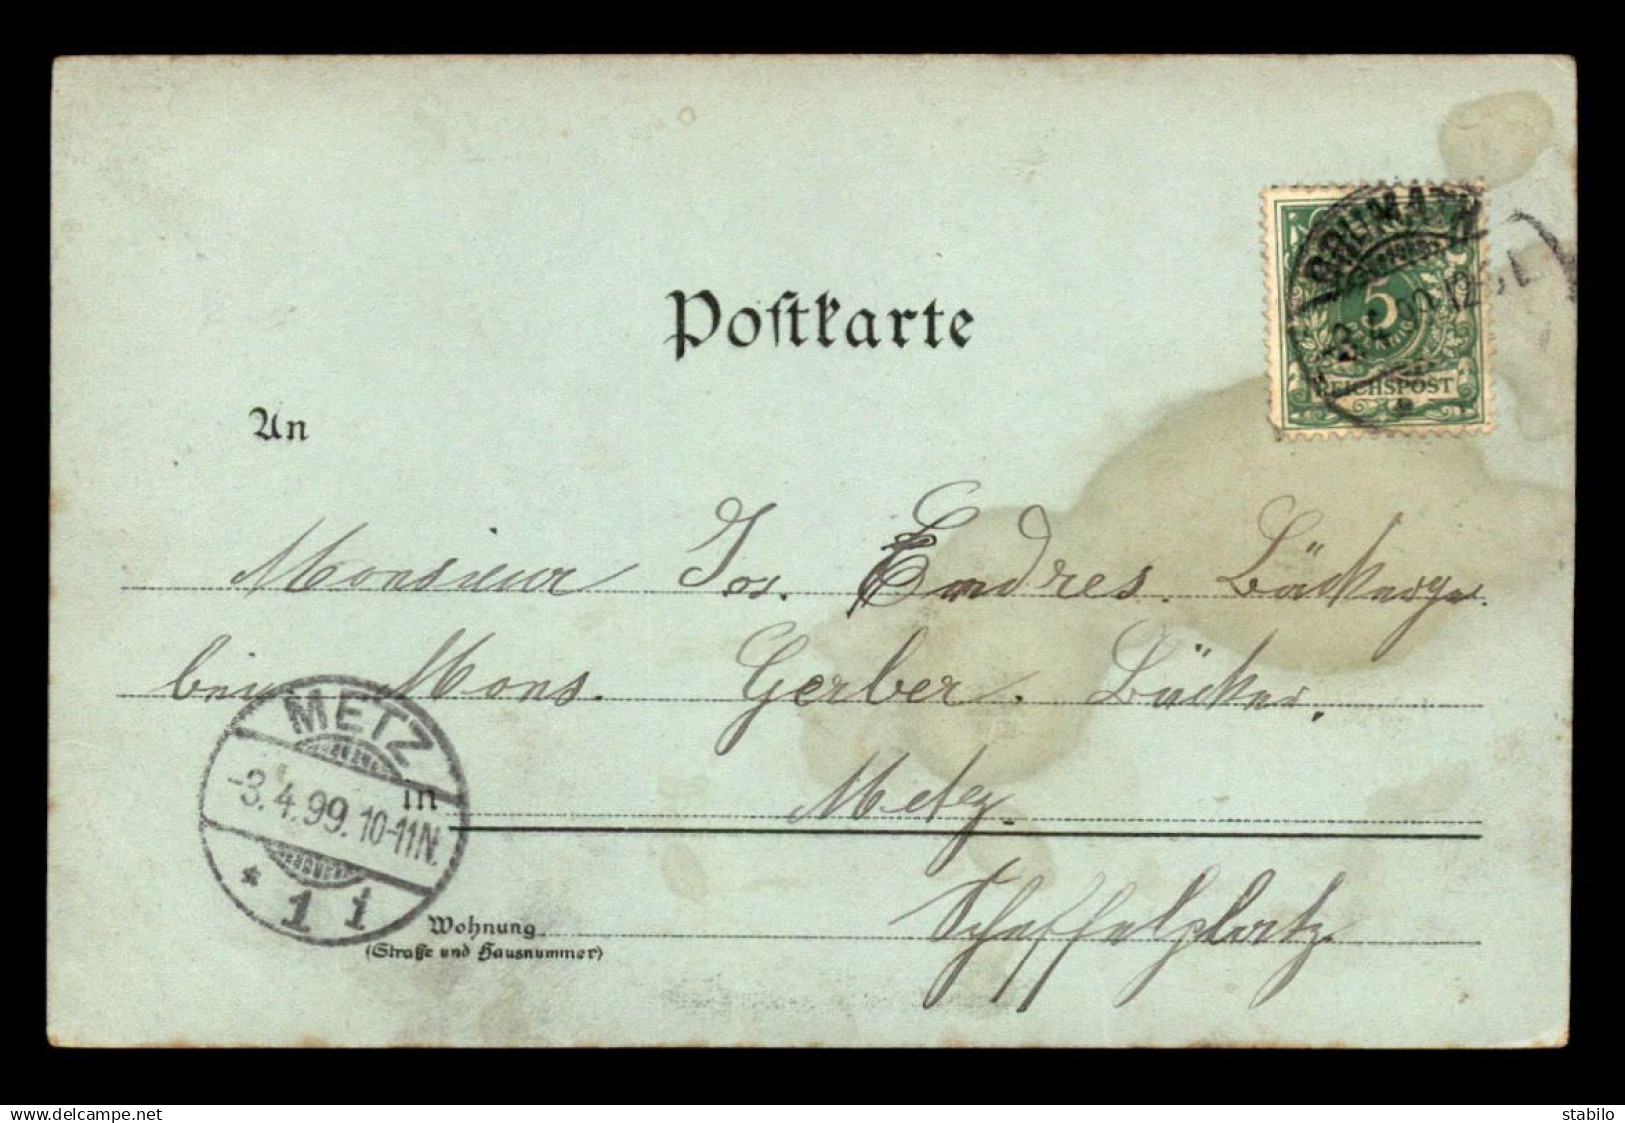 Postkarte
BRUMATH
5
PFENNIG
REICHSPOST
An
Monsieur Jos. Endres. Bäckerge
bei Mons. Gerber. Bäcker.
METZ
-3.4.99. 10-11N.
* 1 i
in Metz.
Wohnung Scheffelplatz
(Straße und Hausnummer)
delcampe.net
stabilo